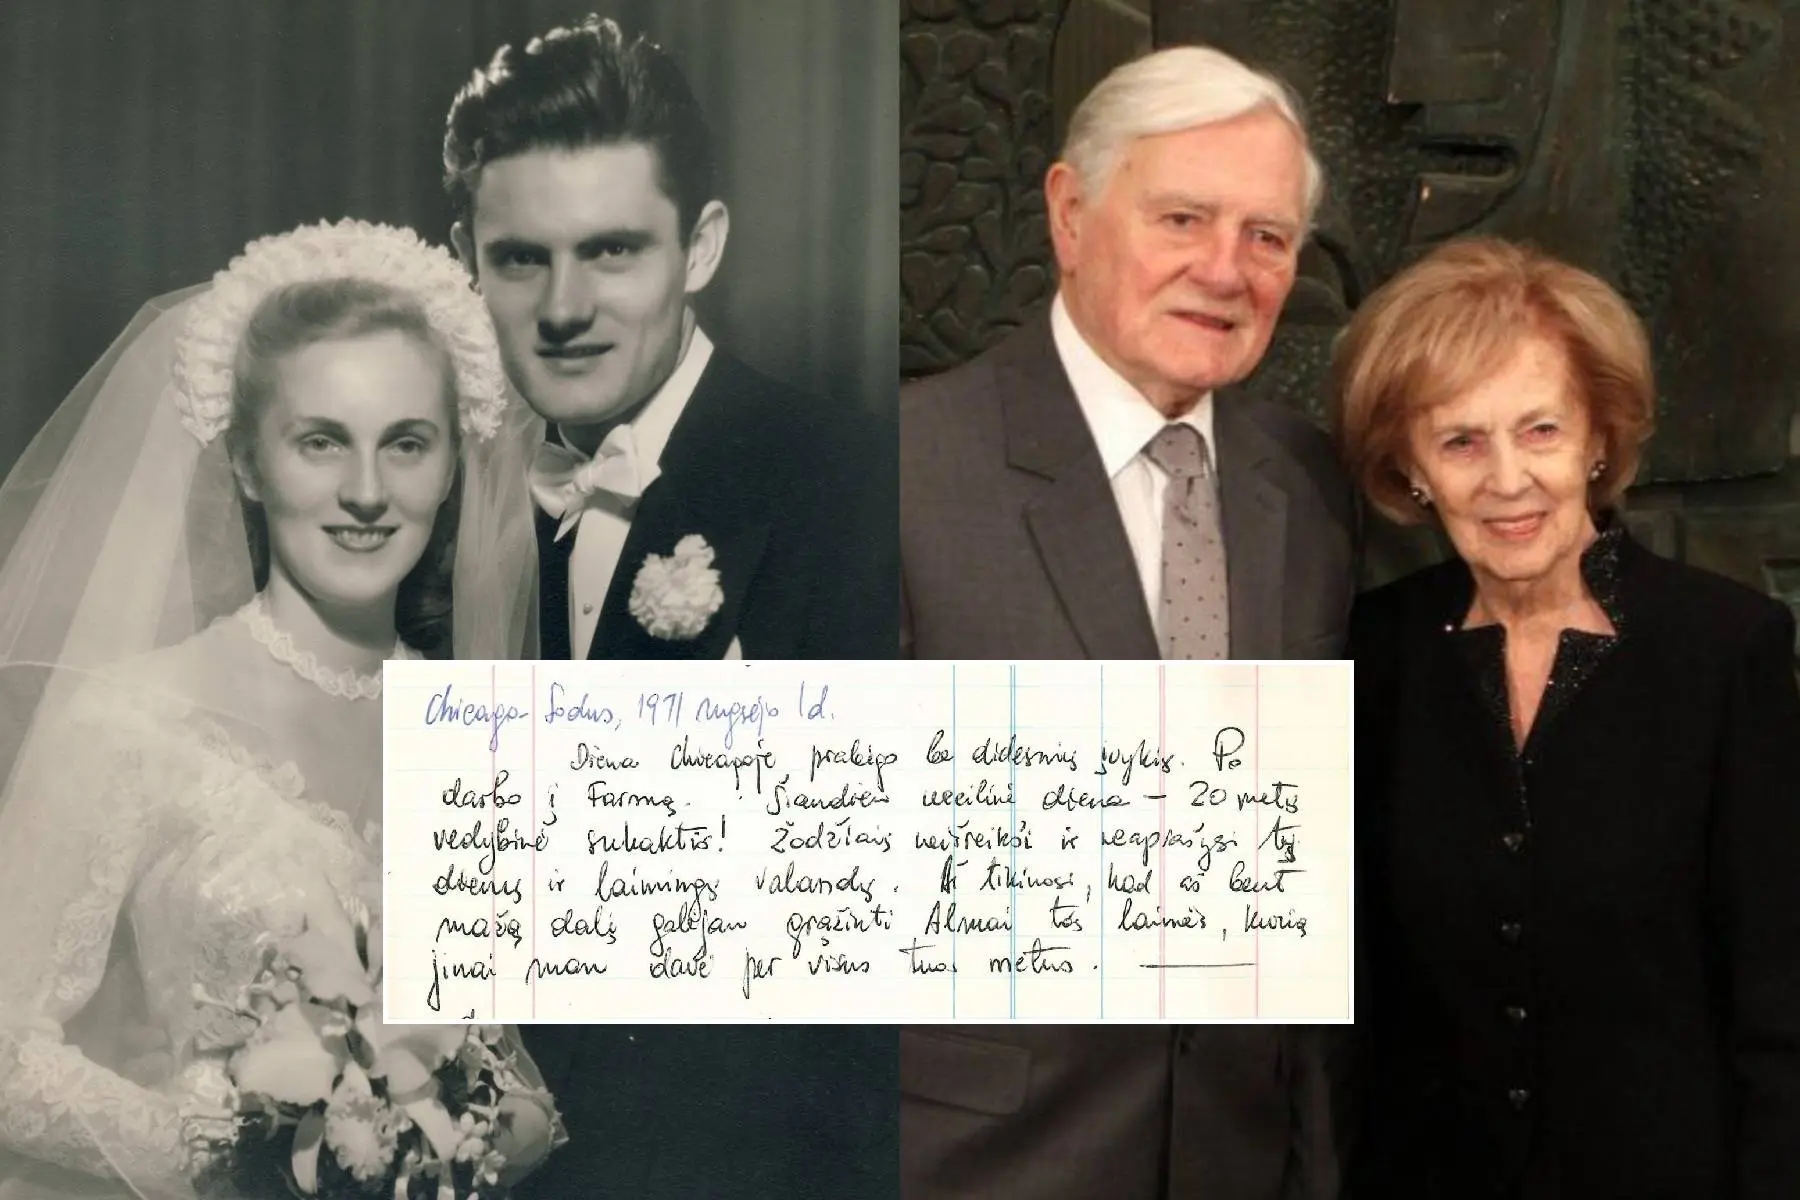 Chicago-Sodus, 1971 rugsėjo 1d.
Diena Chicagoje prabėgo be didesnių įvykių. Po
darbo į Farmą. Šiandien ypatinė diena – 20 metų
vedybinė sukaktis! Žodžiais neišreikši ir neaprašysi tų
dienų ir laimingų valandų. Aš tikiuosi, kad aš bent
mažą dalį galėjau grąžinti Almai tos laimės, kurią
jinai man davė per visus tuos metus.